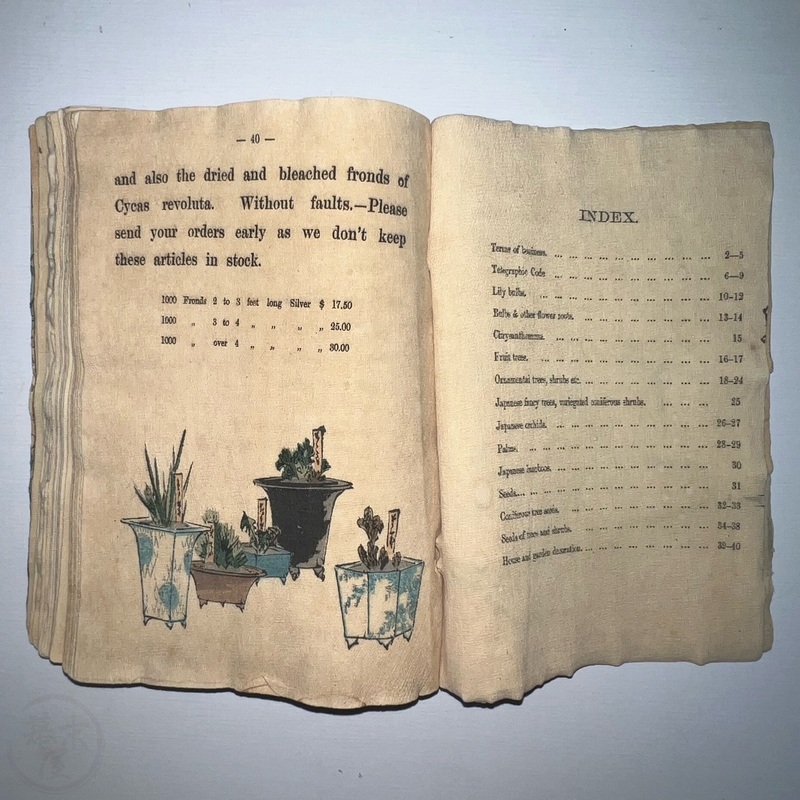 — 40 —
and also the dried and bleached fronds of
Cycas revoluta. Without faults.—Please
send your orders early as we don't keep
these articles in stock.
1000 Fronds 2 to 3 feet long Silver $ 17.50
1000 „ 3 to 4 „ „ „ „ 25.00
1000 „ over 4 „ „ „ „ 30.00
INDEX.
Terms of business. ... ... ... ... ... ... ... ... 2—5
Telegraphic Code ... ... ... ... ... ... ... ... 6—9
Lily bulbs. ... ... ... ... ... ... ... ... 10-12
Bulbs & other flower roots. ... ... ... ... ... ... 13-14
Chrysanthemums. ... ... ... ... ... ... ... ... 15
Fruit trees. ... ... ... ... ... ... ... ... 16-17
Ornamental trees, shrubs etc. ... ... ... ... ... ... 18-24
Japanese fancy trees, variegated coniferous shrubs. ... ... ... 25
Japanese orchids. ... ... ... ... ... ... ... ... 26-27
Palms. ... ... ... ... ... ... ... ... 28-29
Japanese bamboos. ... ... ... ... ... ... ... 30
Seeds.... ... ... ... ... ... ... ... ... 31
Coniferous tree seeds. ... ... ... ... ... ... ... 32-33
Seeds of trees and shrubs. ... ... ... ... ... ... 34-38
House and garden decoration. ... ... ... ... ... ... 39-40